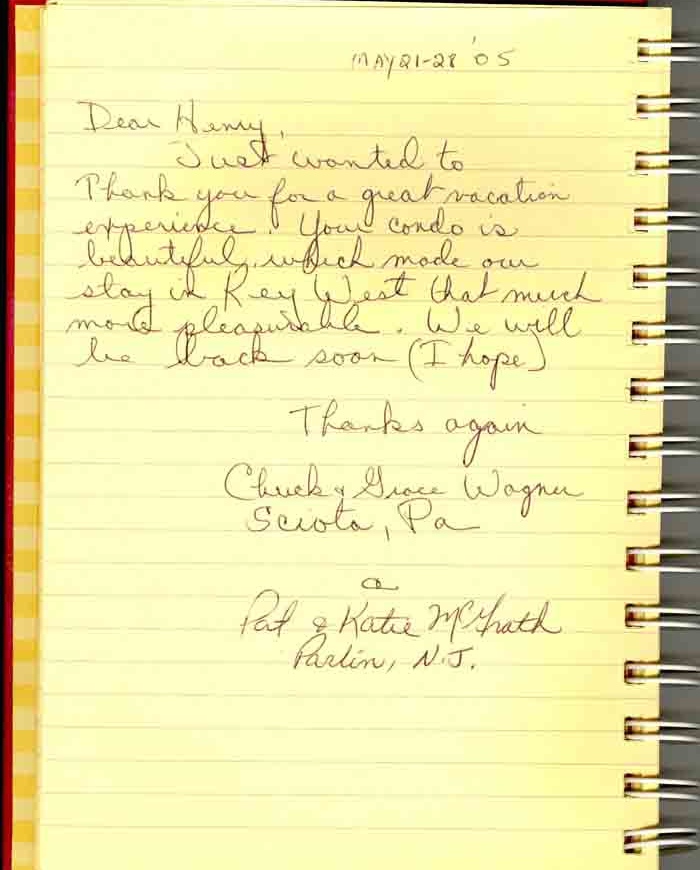 MAY 21-28 '05
Dear Henry,
Just wanted to
Thank you for a great vacation
experience. Your condo is
beautiful, which made our
stay in Key West that much
more pleasurable. We will
be back soon (I hope)
Thanks again
Chuck & Grace Wagner
Sciota, Pa
Pat & Katie McGrath
Parlin, N.J.